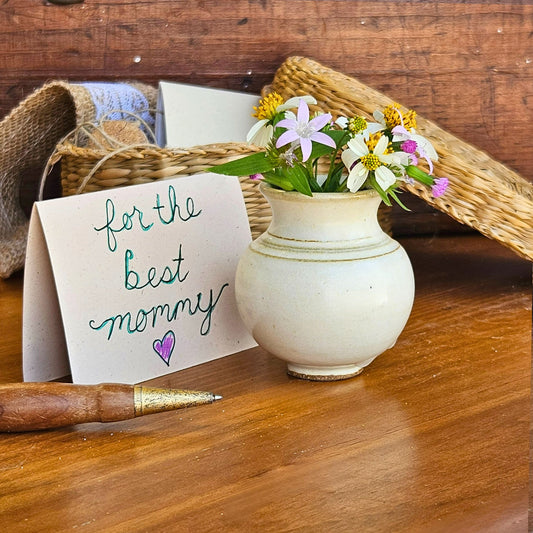 for the
best
mommy